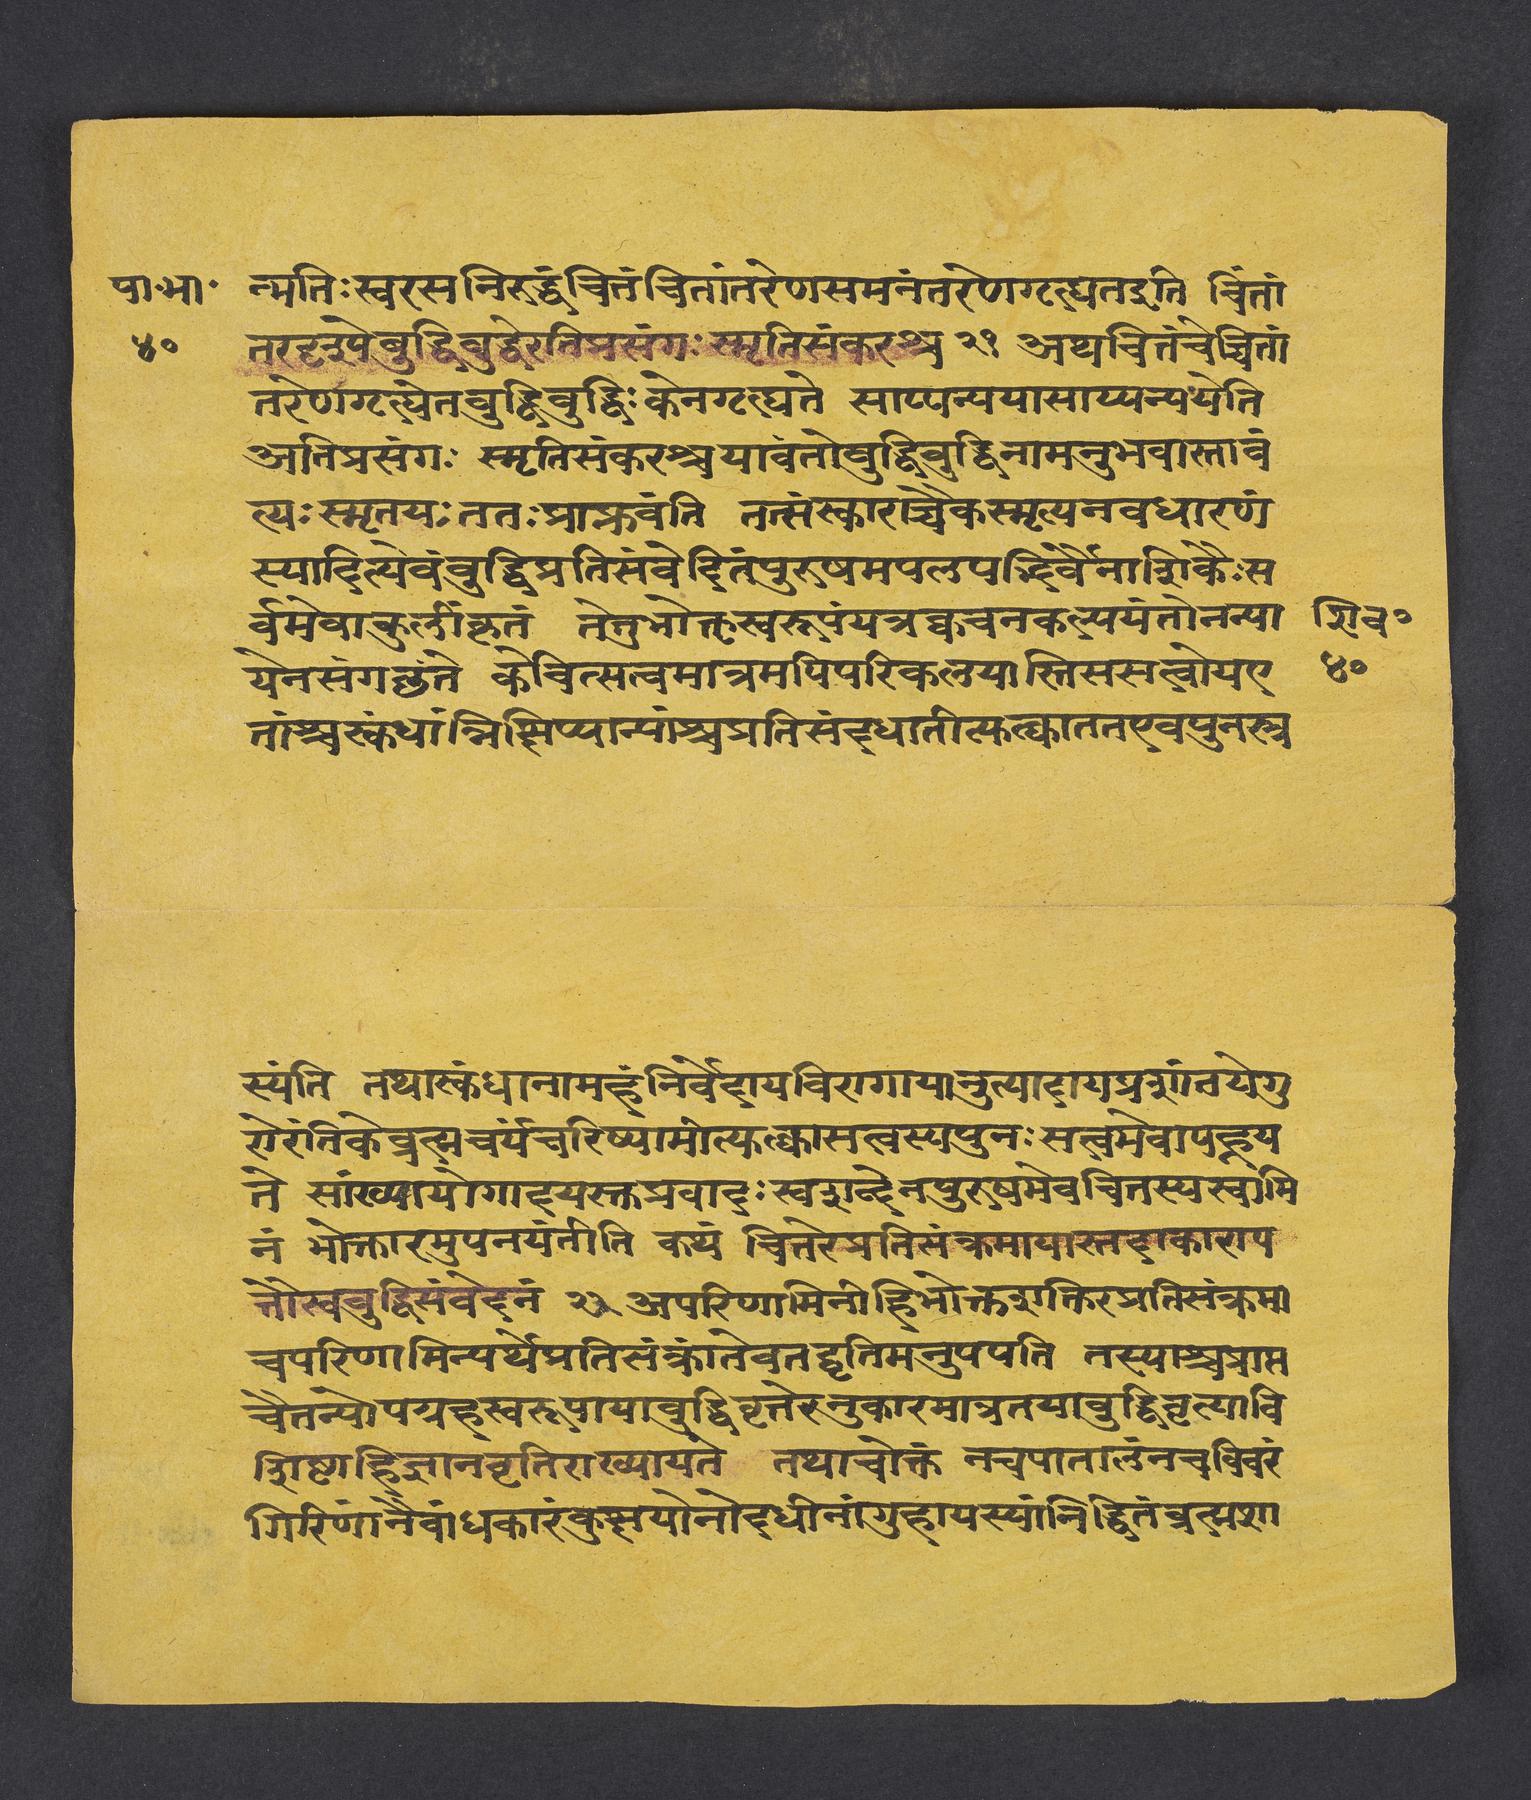 पा॰भा॰
४०
न्मतिः स्वरसनिरुद्धं चितं चितांतरेण समनंतरेण गृह्यत इति चिंतां
तरदृश्ये बुद्धिबुद्धेरतिप्रसंगः स्मृतिसंकरश्च २१ अथ चितं चेच्चितां
तरेण गृह्येत बुद्धिबुद्धिः केन गृह्यते साप्यन्यया साप्यन्ययेति
अतिप्रसंगः स्मृतिसंकरश्च यावंतो बुद्धिबुद्धिनामनुभवास्तावं
त्यः स्मृतयः ततः प्राप्नुवंति तत्संस्काराच्चैकस्मृत्यनवधारणं
स्यादित्येवं बुद्धिप्रतिसंवेदितं पुरुषमपलपद्भिर्वैनाशिकैः स
र्वमेवाकुलीकृतं ते तु भोक्तृस्वरूपं यत्र क्वचन कल्पयंतो नन्या
येन संगछंते केचित्सत्वमात्रमपि परिकलयास्ति स सत्वो य ए
तांश्च स्कंधांन्निक्षिप्यान्यांश्च प्रतिसंदधातीत्यक्त्वा तत एव पुनस्त्र
शिव॰
४०
स्यंति तथा स्कंधानामहं निर्वेदाय विरागायानुत्पादाय प्रशांतये गु
रोरंतिके ब्रह्मचर्यं चरिष्यामीत्यक्त्वा सत्वस्य पुनः सत्वमेवापह्नूय
ते सांख्यायोगादयस्क्त प्रवादः स्वशब्देन पुरुषमेव चितस्य स्वामि
नं भोक्तारमुपनयंतीति कथं चित्तेरप्रतिसंक्रमायास्तदाकाराप
तौ स्वबुद्धिसंवेदनं २२ अपरिणामिनी हि भोक्तृशक्तिरप्रतिसंक्रमा
च परिणामिन्यर्थे प्रतिसंक्रांतेव तद्वृतिमनुपपति तस्याश्च प्राप्त
चैतन्योपग्रहस्वरूपाया बुद्धिवृत्तेरनुकारमात्रतया बुद्धिवृत्याबि
शिष्टाहि ज्ञानवृतिराख्यायते तथाचोक्तं न च पातालं न च विवरं
गिरिणां नैवांधकारं कुक्षयो नोदधीनां गुहा यस्यां निद्धितं ब्रह्म शा